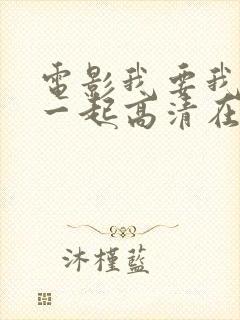 電影我要我
一起高清在
沐槿藍